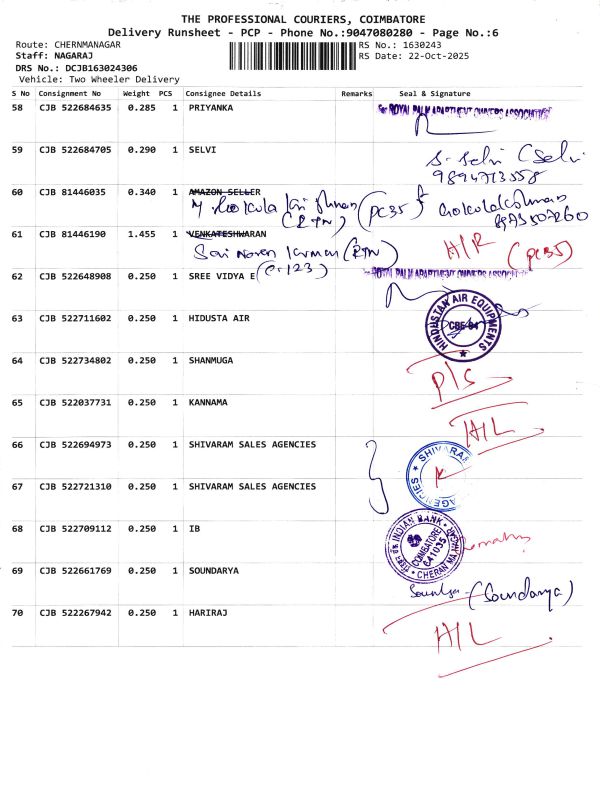 THE PROFESSIONAL COURIERS, COIMBATORE
Delivery Runsheet - PCP - Phone No.:9047080280 - Page No.:6
Route: CHERNMANAGAR RS No.: 1630243
Staff: NAGARAJ RS Date: 22-Oct-2025
DRS No.: DCJB163024306
Vehicle: Two Wheeler Delivery
S No Consignment No Weight PCS Consignee Details Remarks Seal & Signature
58 CJB 522684635 0.285 1 PRIYANKA For ROYAL PALM APARTMENT OWNERS ASSOCIATION
59 CJB 522684705 0.290 1 SELVI S. Selvi (Selvi
9894713558
60 CJB 81446035 0.340 1 AMAZON SELLER
(RTN) (PC35)
61 CJB 81446190 1.455 1 VENKATESHWARAN H/R (PC35)
(RTN)
62 CJB 522648908 0.250 1 SREE VIDYA E (C-123) For ROYAL PALM APARTMENT OWNERS ASSOCIATION
63 CJB 522711602 0.250 1 HIDUSTA AIR HINDUSTAN AIR EQUIPMENTS CBE-04
64 CJB 522734802 0.250 1 SHANMUGA P/S
65 CJB 522037731 0.250 1 KANNAMA H/L
66 CJB 522694973 0.250 1 SHIVARAM SALES AGENCIES SHIVARAM AGENCIES
67 CJB 522721310 0.250 1 SHIVARAM SALES AGENCIES
68 CJB 522709112 0.250 1 IB INDIAN BANK CHERAN MA NAGAR COIMBATORE 641035
69 CJB 522661769 0.250 1 SOUNDARYA (Soundarya)
70 CJB 522267942 0.250 1 HARIRAJ H/L